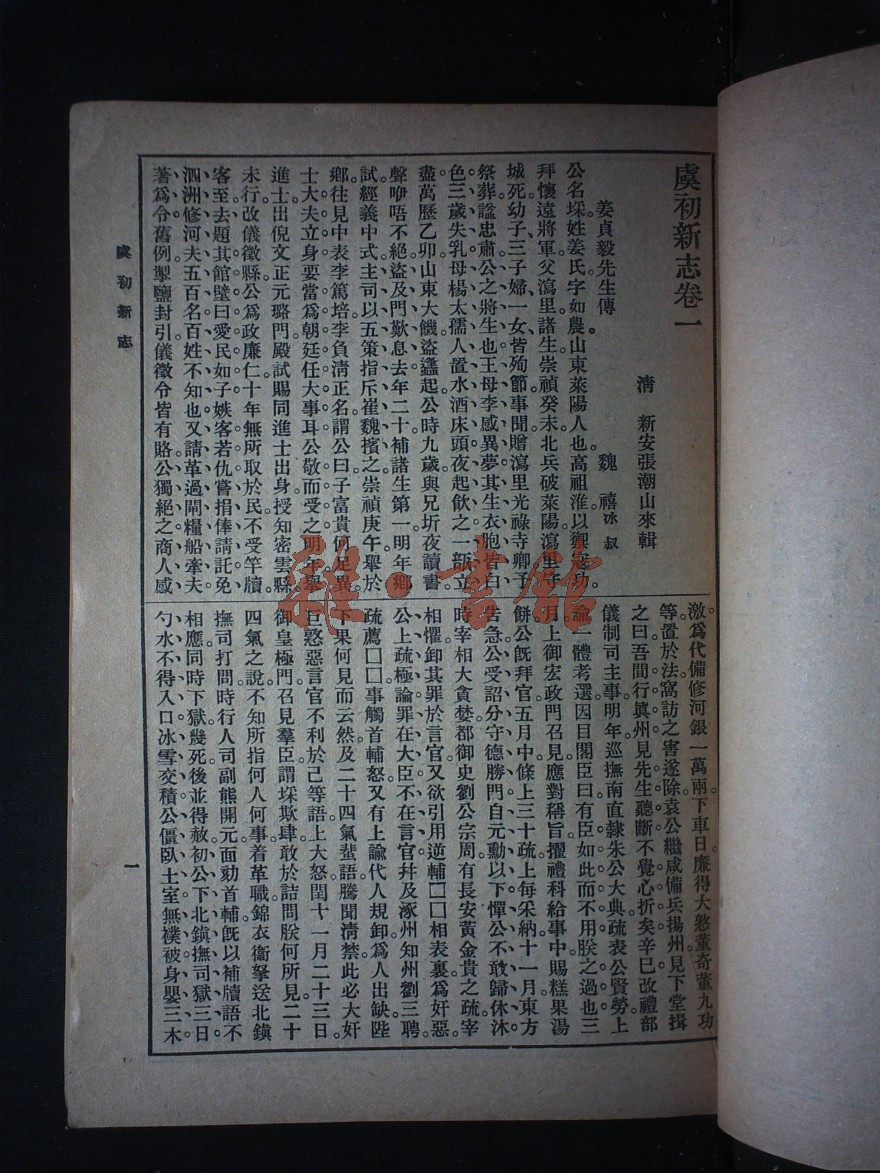 虞初新志卷一
清　新安張潮山來輯
姜貞毅先生傳　魏　禧冰叔
公名埰姓姜氏字如農山東萊陽人也。高祖淮以禦寇功。
拜懷遠將軍父瀉里諸生崇禎癸未北兵破萊陽瀉里守
城死幼子三子婦一女皆殉節事聞贈瀉里光祿寺卿予
祭葬諡忠肅公之將生也王母李感異夢其生衣胞皆白
色三歲失乳母楊太孺人置水酒床頭夜起飲之一部立
盡萬歷乙卯山東大饑盜蠭起公時九歲與兄圻夜讀書
聲咿唔不絕盜及門歎息去年二十補諸生第一明年鄉
試經義中式主司以五策指斥崔魏擯之崇禎庚午舉於
鄉往見中表李篤培李負清正名謂公曰子富貴何足異
士大夫立身要當爲朝廷任大事耳公敬而受之明年舉
進士出倪文正元璐門殿試賜同進士出身授知密雲縣
未行改儀徵縣公爲政廉仁十年無所取於民不受竿牘
客至去題其館壁曰愛民如子嫉客若仇嘗捐俸請託免
泗洲修河夫五百名百姓不知也又請革過閘糧船牽夫
著爲令舊例掣鹽封引儀徵令皆有賂公獨絕之商人感
激爲代備修河銀一萬兩下車日廉得大憝董奇董九功
等置於法窩訪之害遂除袁公繼咸備兵揚州見下堂揖
之曰吾間行眞州見先生聽斷不覺心折矣辛巳改禮部
儀制司主事明年巡撫南直隸朱公大典疏表公賢勞上
諭一體考選因目閣臣曰有臣如此而不用朕之過也三
月上御宏政門召見應對稱旨擢禮科給事中賜糕果湯
餅公旣拜官五月中條上三十疏上每采納十一月東方
告急公受詔分守德勝門自元勳以下憚公不敢歸休沐
時宰相大貪婪都御史劉公宗周有長安黃金貴之疏宰
相懼卸其罪于言官又欲引用逆輔囗囗相表裏爲奸惡。
公上疏極論罪在大臣不在言官幷及涿州知州劉三聘
疏薦囗囗事觸首輔怒又有上諭代人規卸爲人出缺陛
下果何見而云然及二十四氣蜚語騰聞清禁此必大奸
巨憝惡言官不利於己等語上大怒閏十一月二十三日
御皇極門召見羣臣謂埰欺肆敢於詰問朕何所見二十
四氣之說不知所指何人何事着革職錦衣衞拏送北鎭
撫司打問時行人司副熊開元面劾首輔旣以補牘語不
相應同時下獄幾死後並得赦初公下北鎭撫司獄三日
勺水不得入口冰雪交積公僵臥土室無襆被身嬰三木
虞初新志
一
雜·書館